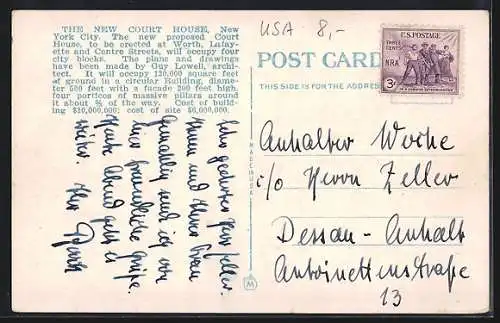 THE NEW COURT HOUSE,
New York City. The new proposed Court
House, to be erected at Worth, Lafay-
ette and Centre Streets, will occupy four
city blocks. The plans and drawings
have been made by Guy Lowell, archi-
tect. It will occupy 130,000 square feet
of ground in a circular Building, diame-
ter 500 feet with a facade 200 feet high,
four porticos of massive pillars around
it about ¾ of the way. Cost of build-
ing $10,000,000; cost of site $6,000,000.
USA 8,-
POST CARD
THIS SIDE IS FOR THE ADDRESS
U.S. POSTAGE
THREE CENTS
NRA
3¢
MADE IN USA
M
Anhalter Woche
c/o Herrn Zeller
Dessau-Anhalt
Antoinettenstraße
13
Sehr geehrter Herr Zeller.
Ihnen und Ihrer Frau
Gemahlin send ich von
hier freundliche Grüße.
Heute Abend geht es
weiter.
Ihr